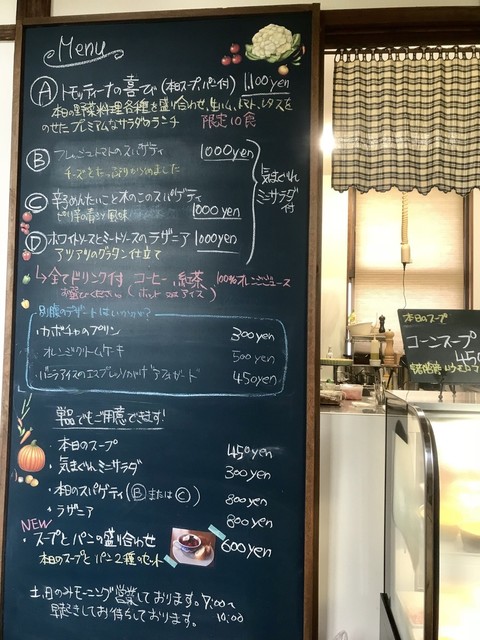 Menu
Ⓐ トモッティーナの喜び(本日スープ、パン付) 1,100yen
本日の野菜料理各種を盛り合わせ、生ハム、トマト、レタスを
のせたプレミアムなサラダのランチ 限定10食
Ⓑ フレッシュトマトのスパゲティ 1000yen
チーズをたっぷりからめました
Ⓒ 辛子めんたいことたけのこのスパゲティ
ピリ辛の風味 1000yen
Ⓓ ホワイトソースとミートソースのラザニア 1000yen
アツアツのグラタン仕立て
気まぐれ
ミニサラダ
付
↳全てドリンク付 コーヒー、紅茶 100%オレンジジュース
お選びください。(ホット or アイス)
別腹のデザートはいかがか?
・カボチャのプリン 300yen
オレンジクリームケーキ 500yen
・バニラアイスのエスプレッソがけ アフォガード 450yen
単品でもご用意できます!
・本日のスープ 450yen
・気まぐれミニサラダ 300yen
・本日のスパゲティ(ⒷまたはⒸ) 800yen
・ラザニア 800yen
NEW
・スープとパンの盛り合わせ 600yen
本日のスープとパン2種のセット
土、日のみモーニング営業しております。9:00〜
早起きしてお待ちしております。 10:00
本日のスープ
コーンスープ
450